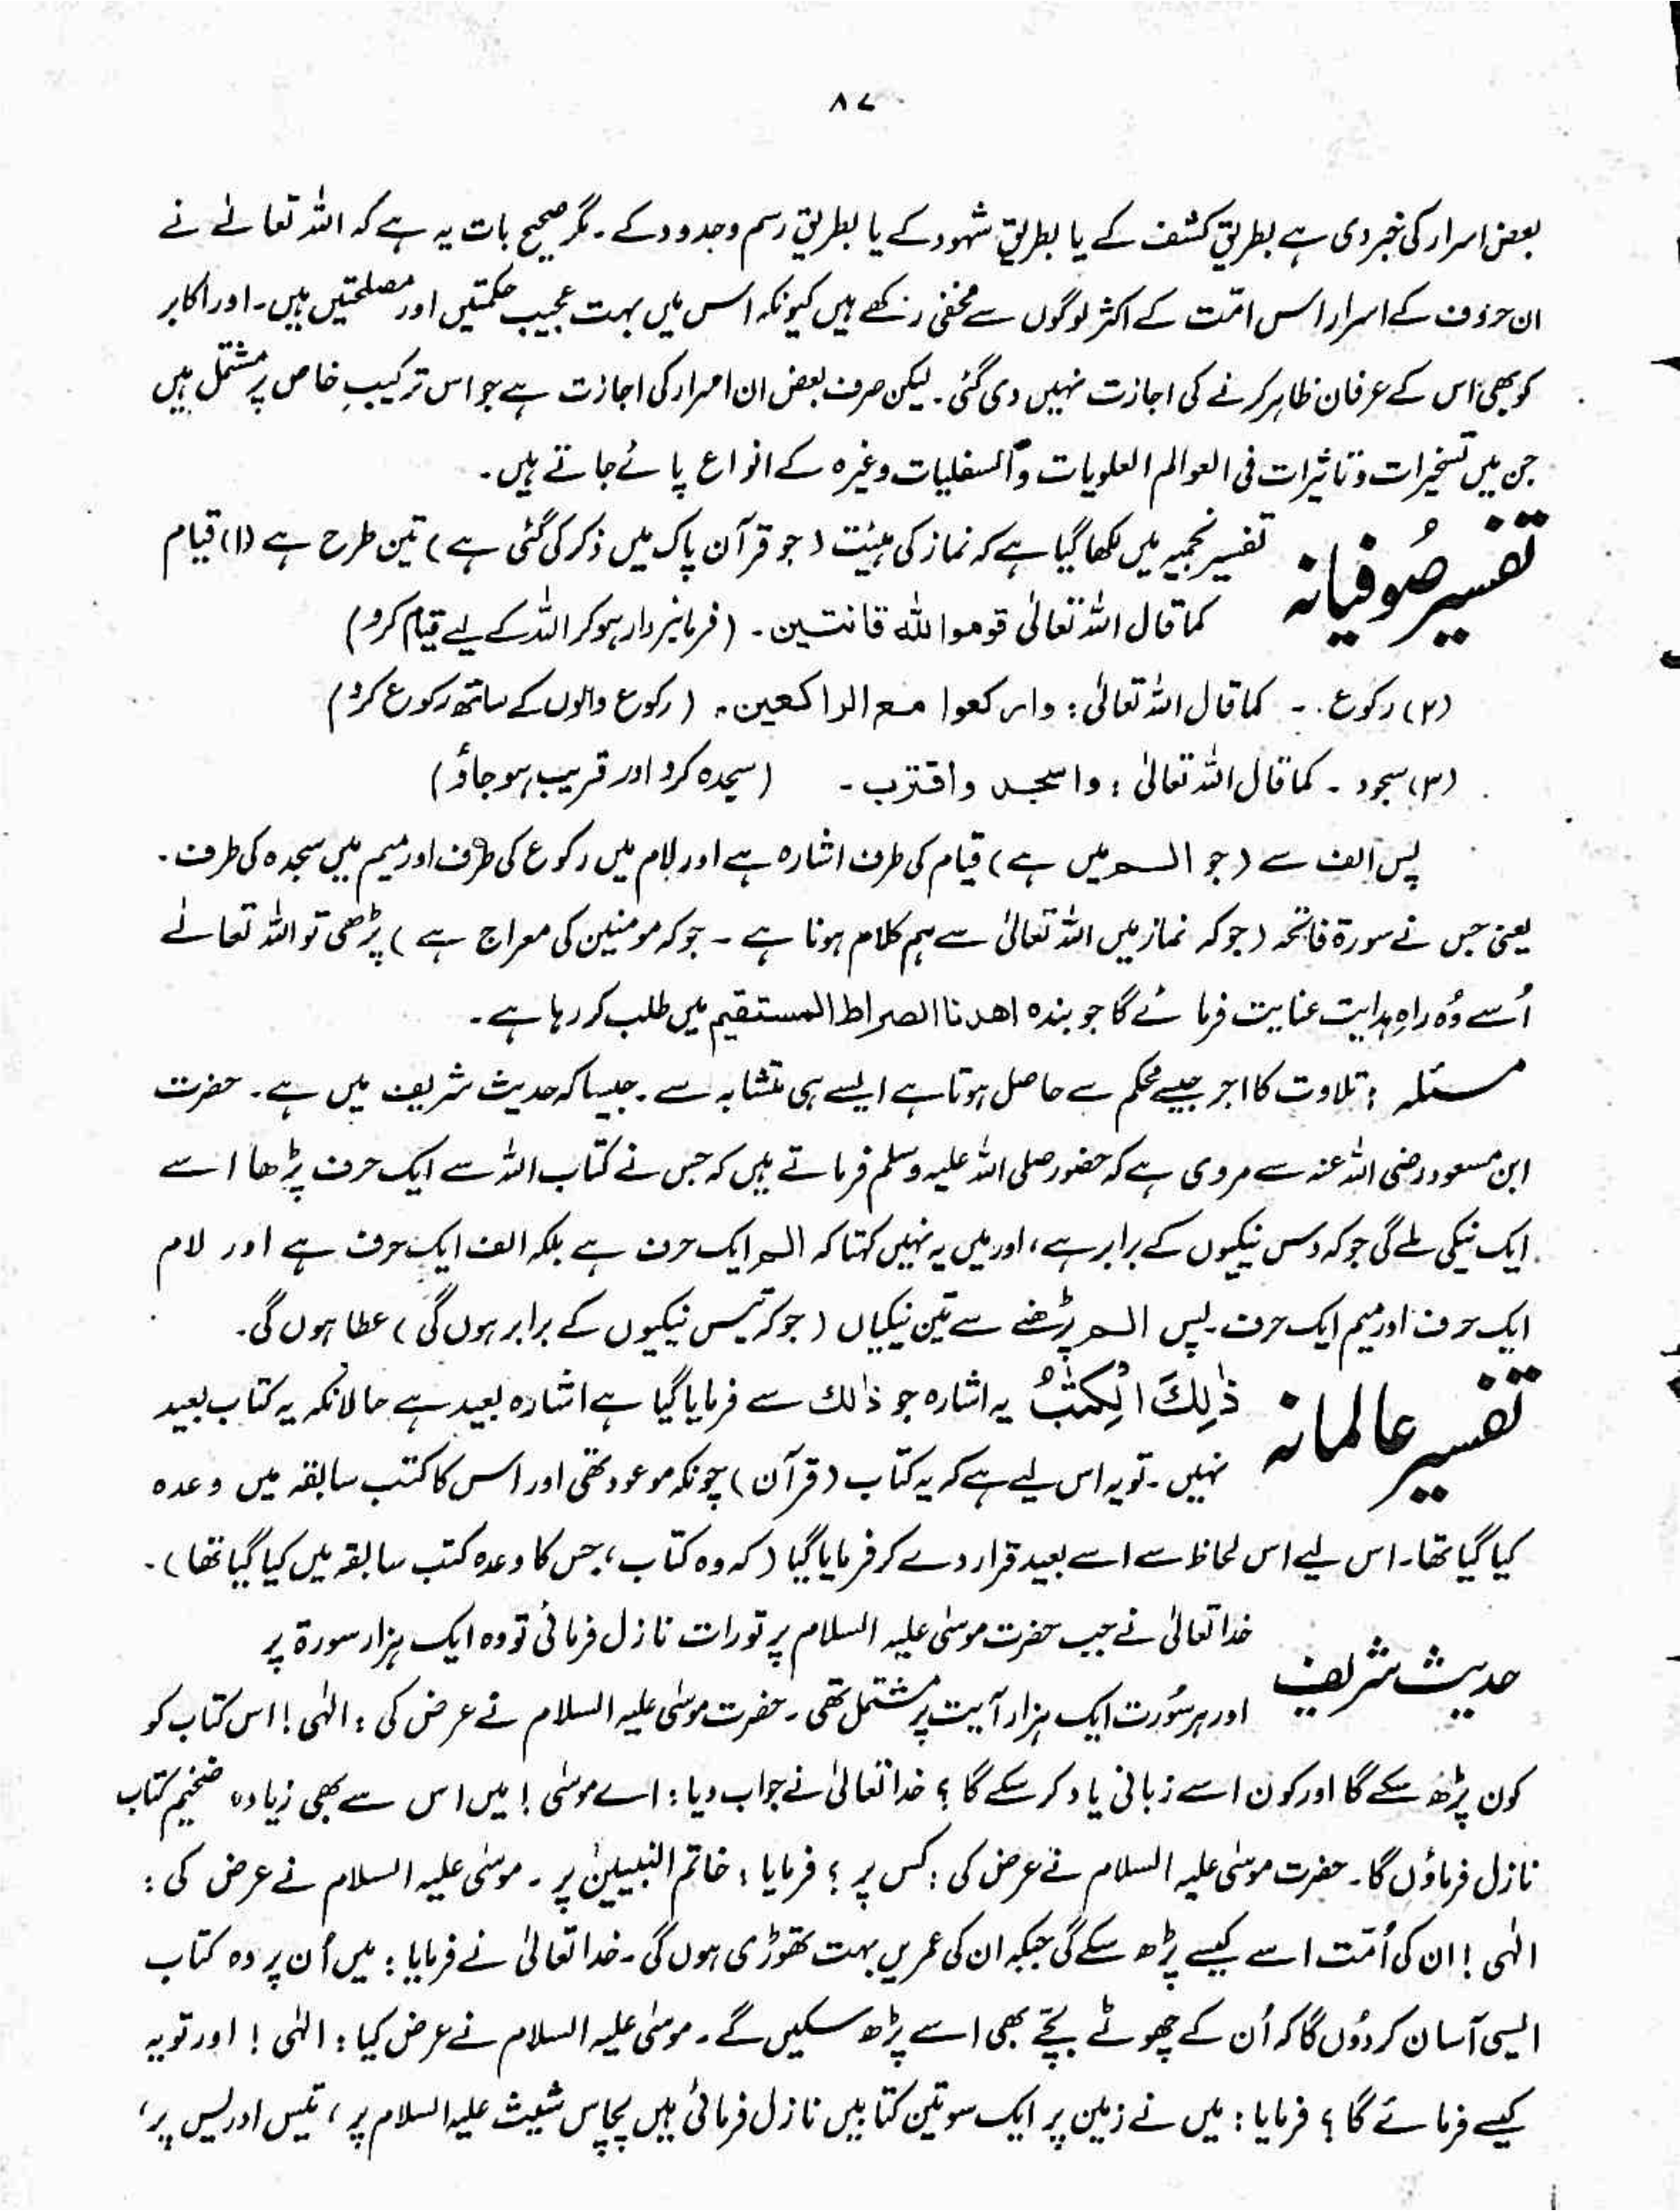 ۸۷
بعض اسرار کی خبر دی ہے بطریق کشف کے یا بطریق شہود کے یا بطریق رسم وحدود کے۔ مگر صحیح بات یہ ہے کہ اللہ تعالےٰ نے
ان حروف کے اسرار اس امّت کے اکثر لوگوں سے مخفی رکھے ہیں کیونکہ اس میں بہت عجیب حکمتیں اور مصلحتیں ہیں۔ اور اکابر
کو بھی اس کے عرفان ظاہر کرنے کی اجازت نہیں دی گئی۔ لیکن صرف بعض ان اسرار کی اجازت ہے جو اس ترکیبِ خاص پر مشتمل ہیں
جن میں تسخیرات و تاثیرات فی العوالم العلویات والسفلیات وغیرہ کے انواع پائے جاتے ہیں۔
تفسیر صُوفیانہ تفسیر نجمیہ میں لکھا گیا ہے کہ نماز کی ہیئت (جو قرآن پاک میں ذکر کی گئی ہے) تین طرح ہے (۱) قیام
کما قال اللہ تعالٰی قوموا للہ قانتین۔ (فرمانبردار ہو کر اللہ کے لیے قیام کرو)
(۲) رکوع۔ کما قال اللہ تعالٰی: وارکعوا مع الراکعین۔ (رکوع والوں کے ساتھ رکوع کرو)
(۳) سجود۔ کما قال اللہ تعالٰی: واسجد واقترب۔ (سجدہ کرو اور قریب ہو جاؤ)
پس الف سے (جو الٓمّ میں ہے) قیام کی طرف اشارہ ہے اور لام میں رکوع کی طرف اور میم میں سجدہ کی طرف۔
یعنی جس نے سورۃ فاتحہ (جو کہ نماز میں اللہ تعالیٰ سے ہم کلام ہونا ہے ۔ جو کہ مومنین کی معراج ہے) پڑھی تو اللہ تعالےٰ
اُسے وُہ راہِ ہدایت عنایت فرمائے گا جو بندہ اھدنا الصراط المستقیم میں طلب کر رہا ہے۔
مسئلہ: تلاوت کا اجر جیسے محکم سے حاصل ہوتا ہے ایسے ہی متشابہ سے۔ جیسا کہ حدیث شریف میں ہے۔ حضرت
ابن مسعود رضی اللہ عنہ سے مروی ہے کہ حضور صلی اللہ علیہ وسلم فرماتے ہیں کہ جس نے کتاب اللہ سے ایک حرف پڑھا اسے
ایک نیکی ملے گی جو کہ دس نیکیوں کے برابر ہے، اور میں یہ نہیں کہتا کہ الٓمّ ایک حرف ہے بلکہ الف ایک حرف ہے اور لام
ایک حرف اور میم ایک حرف۔ پس الٓمّ پڑھنے سے تین نیکیاں (جو کہ تیس نیکیوں کے برابر ہوں گی) عطا ہوں گی۔
تفسیر عالمانہ ذٰلِكَ الْكِتٰبُ یہ اشارہ جو ذالك سے فرمایا گیا ہے اشارہ بعید ہے حالانکہ یہ کتاب بعید
نہیں۔ تو یہ اس لیے ہے کہ یہ کتاب (قرآن) چونکہ موعود تھی اور اس کا کتب سابقہ میں وعدہ
کیا گیا تھا۔ اس لیے اس لحاظ سے اسے بعید قرار دے کر فرمایا گیا (کہ وہ کتاب، جس کا وعدہ کتب سابقہ میں کیا گیا تھا)۔
حدیث شریف خدا تعالیٰ نے جب حضرت موسٰی علیہ السلام پر تورات نازل فرمائی تو وہ ایک ہزار سورۃ پر
اور ہر سُورت ایک ہزار آیت پر مشتمل تھی۔ حضرت موسٰی علیہ السلام نے عرض کی: الٰہی! اس کتاب کو
کون پڑھ سکے گا اور کون اسے زبانی یاد کر سکے گا؟ خدا تعالیٰ نے جواب دیا: اے موسٰی! میں اس سے بھی زیادہ ضخیم کتاب
نازل فرماؤں گا۔ حضرت موسٰی علیہ السلام نے عرض کی: کس پر؟ فرمایا: خاتم النبیین پر۔ موسٰی علیہ السلام نے عرض کی:
الٰہی! ان کی اُمّت اسے کیسے پڑھ سکے گی جبکہ ان کی عمریں بہت تھوڑی ہوں گی۔ خدا تعالیٰ نے فرمایا: میں اُن پر وہ کتاب
ایسی آسان کر دُوں گا کہ اُن کے چھوٹے بچے بھی اسے پڑھ سکیں گے۔ موسٰی علیہ السلام نے عرض کیا: الٰہی! اور تو یہ
کیسے فرمائے گا؟ فرمایا: میں نے زمین پر ایک سو تین کتابیں نازل فرمائی ہیں پچاس شیث علیہ السلام پر، تیس ادریس پر،